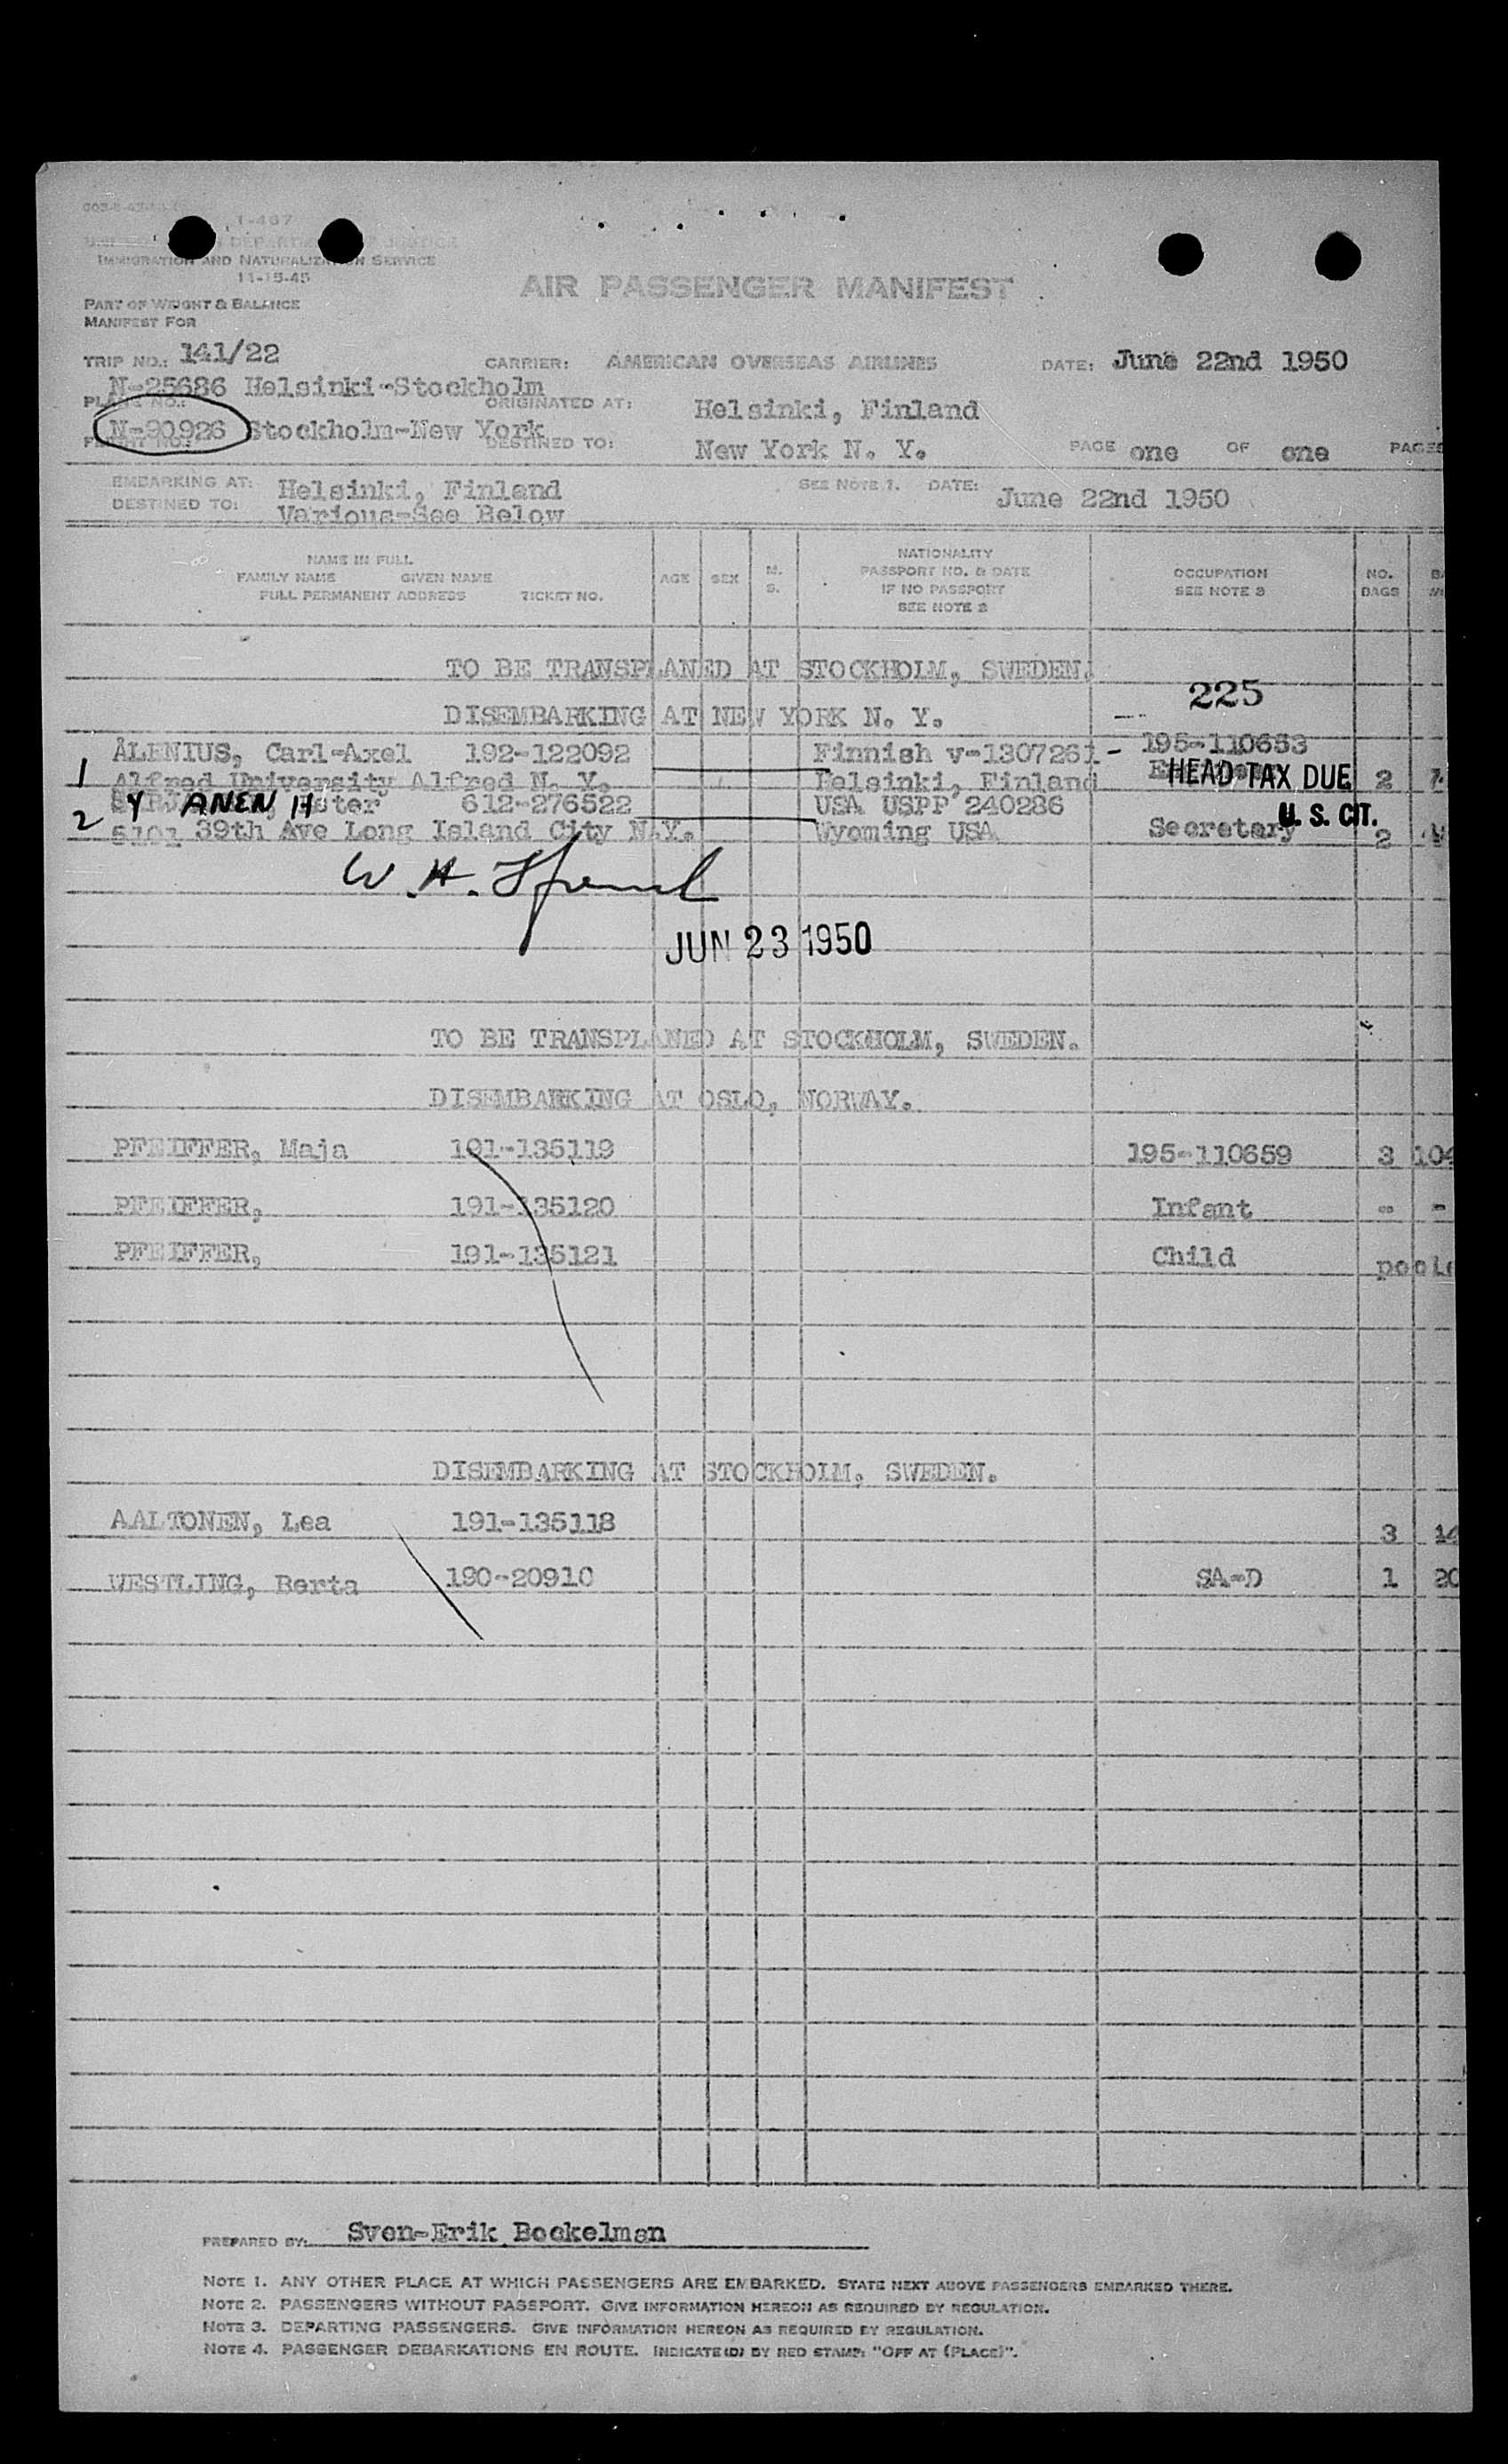 1-467
DEPARTMENT OF JUSTICE
IMMIGRATION AND NATURALIZATION SERVICE
11-15-45
AIR PASSENGER MANIFEST
PART OF WEIGHT & BALANCE
MANIFEST FOR
TRIP NO.: 141/22 CARRIER: AMERICAN OVERSEAS AIRLINES DATE: June 22nd 1950
N-25686 Helsinki-Stockholm
PLANE NO.: ORIGINATED AT: Helsinki, Finland
N-90926 Stockholm-New York
FLIGHT NO.: DESTINED TO: New York N. Y. PAGE one OF one PAGES
EMBARKING AT: Helsinki, Finland SEE NOTE 1. DATE: June 22nd 1950
DESTINED TO: Various-See Below
NAME IN FULL
FAMILY NAME GIVEN NAME
FULL PERMANENT ADDRESS TICKET NO.
AGE SEX M. S.
NATIONALITY
PASSPORT NO. & DATE
IF NO PASSPORT
SEE NOTE 2
OCCUPATION
SEE NOTE 3
NO.
BAGS
TO BE TRANSPLANED AT STOCKHOLM, SWEDEN.
225
DISEMBARKING AT NEW YORK N. Y.
ÅLENIUS, Carl-Axel 192-122092 Finnish v-1307261- 195-110653
1 Alfred University Alfred N. Y. Helsinki, Finland HEAD TAX DUE 2
Y ANEN H ster 612-276522 USA USPP 240286 U. S. CIT.
2 5101 39th Ave Long Island City N.Y. Wyoming USA Secretary 2
W. H.
JUN 23 1950
TO BE TRANSPLANED AT STOCKHOLM, SWEDEN.
DISEMBARKING AT OSLO, NORWAY.
PFEIFFER, Maja 191-135119 195-110659 3 104
PFEIFFER, 191-135120 Infant - -
PFEIFFER, 191-135121 Child poole
DISEMBARKING AT STOCKHOLM, SWEDEN.
AALTONEN, Lea 191-135118 3 14
WESTLING, Berta 190-20910 SA-D 1 20
PREPARED BY: Sven-Erik Bockelman
NOTE 1. ANY OTHER PLACE AT WHICH PASSENGERS ARE EMBARKED. STATE NEXT ABOVE PASSENGERS EMBARKED THERE.
NOTE 2. PASSENGERS WITHOUT PASSPORT. GIVE INFORMATION HEREON AS REQUIRED BY REGULATION.
NOTE 3. DEPARTING PASSENGERS. GIVE INFORMATION HEREON AS REQUIRED BY REGULATION.
NOTE 4. PASSENGER DEBARKATIONS EN ROUTE. INDICATE (D) BY RED STAMP: "OFF AT (PLACE)".